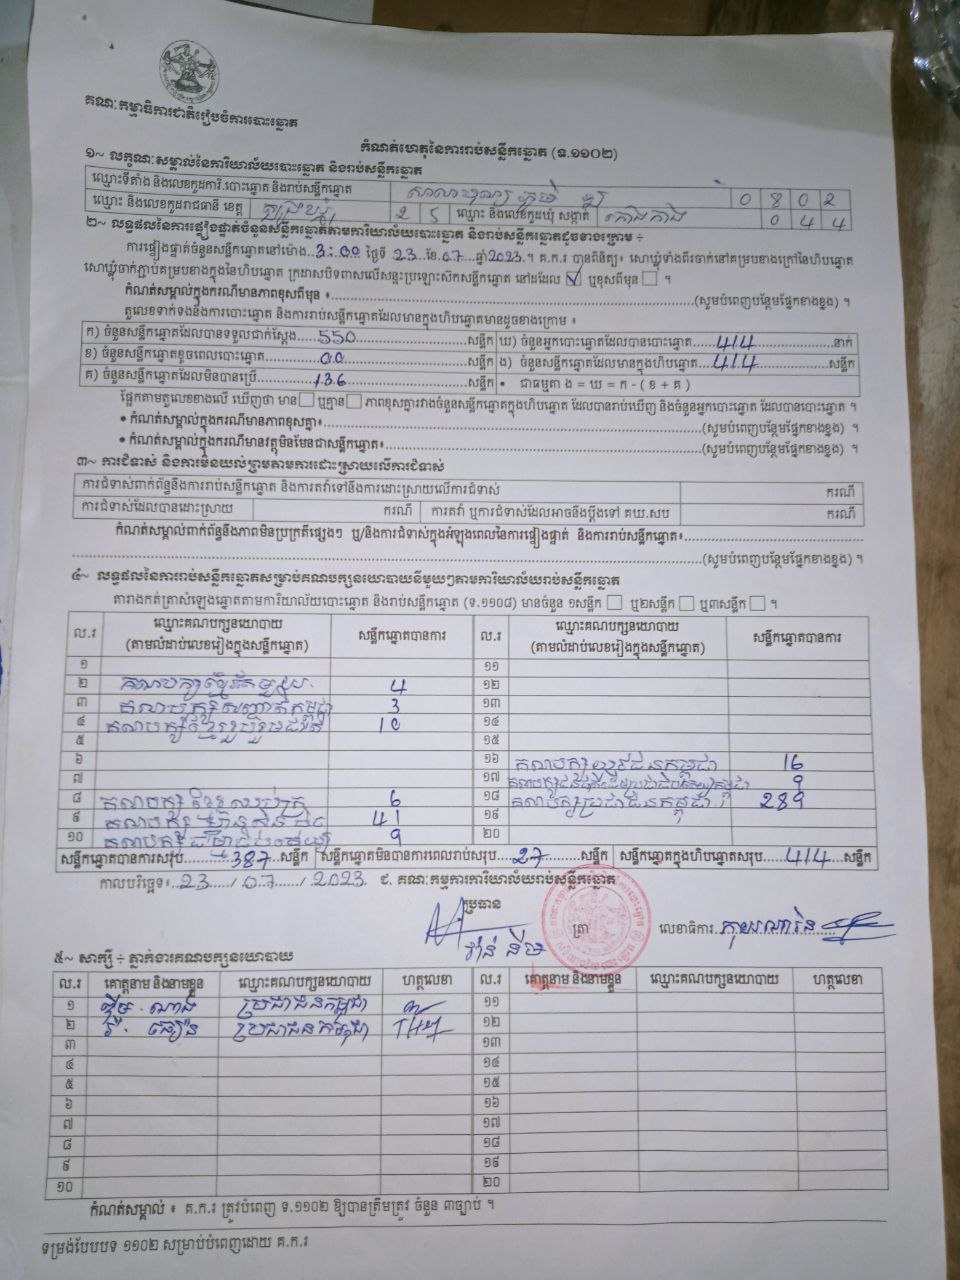 គណៈកម្មាធិការជាតិរៀបចំការបោះឆ្នោត
កំណត់ហេតុនៃការរាប់សន្លឹកឆ្នោត (ទ.១១០២)
១~ លក្ខណៈសម្គាល់នៃការិយាល័យបោះឆ្នោត និងរាប់សន្លឹកឆ្នោត
ឈ្មោះទីតាំង និងលេខកូដការិ.បោះឆ្នោត និងរាប់សន្លឹកឆ្នោត 0 8 0 2
ឈ្មោះ និងលេខកូដរាជធានី ខេត្ត 2 5 ឈ្មោះ និងលេខកូដឃុំ សង្កាត់ 0 4 4
២~ លទ្ធផលនៃការផ្ទៀងផ្ទាត់ចំនួនសន្លឹកឆ្នោតតាមការិយាល័យបោះឆ្នោត និងរាប់សន្លឹកឆ្នោតដូចខាងក្រោម ÷
ការផ្ទៀងផ្ទាត់ចំនួនសន្លឹកឆ្នោតនៅម៉ោង..3:00 ថ្ងៃទី 23 ខែ.07 ឆ្នាំ2023. ។ គ.ក.រ បានពិនិត្យ៖ សោឃ្មុំទាំងពីរចាក់នៅគម្របខាងក្រៅនៃហិបឆ្នោត
សោឃ្មុំចាក់ភ្ជាប់គម្របខាងក្នុងនៃហិបឆ្នោត ក្រដាសបិទពាសលើសន្ទះប្រឡោះសិកសន្លឹកឆ្នោត នៅដដែល ✓ ឬខុសពីមុន ។
កំណត់សម្គាល់ក្នុងករណីមានភាពខុសពីមុន ៖ (សូមបំពេញបន្ថែមផ្នែកខាងខ្នង) ។
តួលេខទាក់ទងនឹងការបោះឆ្នោត និងការរាប់សន្លឹកឆ្នោតដែលមានក្នុងហិបឆ្នោតមានដូចខាងក្រោម ៖
ក) ចំនួនសន្លឹកឆ្នោតដែលបានទទួលជាក់ស្តែង 550 សន្លឹក ឃ) ចំនួនអ្នកបោះឆ្នោតដែលបានបោះឆ្នោត 414 នាក់
ខ) ចំនួនសន្លឹកឆ្នោតខូចពេលបោះឆ្នោត 00 សន្លឹក ង) ចំនួនសន្លឹកឆ្នោតដែលមានក្នុងហិបឆ្នោត 414 សន្លឹក
គ) ចំនួនសន្លឹកឆ្នោតដែលមិនបានប្រើ 136 សន្លឹក • ជាធម្មតា ង = ឃ = ក - ( ខ + គ )
ផ្អែកតាមតួលេខខាងលើ ឃើញថា មាន ឬគ្មាន ភាពខុសគ្នារវាងចំនួនសន្លឹកឆ្នោតក្នុងហិបឆ្នោត ដែលបានរាប់ឃើញ និងចំនួនអ្នកបោះឆ្នោត ដែលបានបោះឆ្នោត ។
• កំណត់សម្គាល់ក្នុងករណីមានភាពខុសគ្នា៖ (សូមបំពេញបន្ថែមផ្នែកខាងខ្នង) ។
• កំណត់សម្គាល់ក្នុងករណីមានវត្ថុមិនមែនជាសន្លឹកឆ្នោត៖ (សូមបំពេញបន្ថែមផ្នែកខាងខ្នង) ។
៣~ ការជំទាស់ និងការមិនយល់ព្រមតាមការដោះស្រាយលើការជំទាស់
ការជំទាស់ពាក់ព័ន្ធនឹងការរាប់សន្លឹកឆ្នោត និងការតវ៉ាទៅនឹងការដោះស្រាយលើការជំទាស់ ករណី
ការជំទាស់ដែលបានដោះស្រាយ ករណី ការតវ៉ា ឬការជំទាស់ដែលអាចនឹងប្តឹងទៅ គឃ.សប ករណី
កំណត់សម្គាល់ពាក់ព័ន្ធនឹងភាពមិនប្រក្រតីផ្សេងៗ ឬ/និងការជំទាស់ក្នុងអំឡុងពេលនៃការផ្ទៀងផ្ទាត់ និងការរាប់សន្លឹកឆ្នោត៖
(សូមបំពេញបន្ថែមផ្នែកខាងខ្នង) ។
៤~ លទ្ធផលនៃការរាប់សន្លឹកឆ្នោតសម្រាប់គណបក្សនយោបាយនីមួយៗតាមការិយាល័យរាប់សន្លឹកឆ្នោត
តារាងកត់ត្រាសំឡេងឆ្នោតតាមការិយាល័យបោះឆ្នោត និងរាប់សន្លឹកឆ្នោត (ទ.១១០៨) មានចំនួន ១សន្លឹក ឬ២សន្លឹក ឬ៣សន្លឹក ។
ល.រ ឈ្មោះគណបក្សនយោបាយ (តាមលំដាប់លេខរៀងក្នុងសន្លឹកឆ្នោត) សន្លឹកឆ្នោតបានការ ល.រ ឈ្មោះគណបក្សនយោបាយ (តាមលំដាប់លេខរៀងក្នុងសន្លឹកឆ្នោត) សន្លឹកឆ្នោតបានការ
១ ១១
២ គណបក្ស 4 ១២
៣ គណបក្ស 3 ១៣
៤ គណបក្ស 10 ១៤
៥ ១៥
៦ ១៦ គណបក្សយុវជនកម្ពុជា 16
៧ ១៧ គណបក្ស 9
៨ គណបក្ស 6 ១៨ គណបក្សប្រជាជនកម្ពុជា 289
៩ គណបក្ស 41 ១៩
១០ គណបក្ស 9 ២០
សន្លឹកឆ្នោតបានការសរុប 387 សន្លឹក សន្លឹកឆ្នោតមិនបានការពេលរាប់សរុប 27 សន្លឹក សន្លឹកឆ្នោតក្នុងហិបឆ្នោតសរុប 414 សន្លឹក
កាលបរិច្ឆេទ៖ 23 / 07 / 2023 ៩. គណៈកម្មការការិយាល័យរាប់សន្លឹកឆ្នោត
ប្រធាន
ត្រា លេខាធិការ
៥~ សាក្សី ÷ ភ្នាក់ងារគណបក្សនយោបាយ
ល.រ គោត្តនាម និងនាមខ្លួន ឈ្មោះគណបក្សនយោបាយ ហត្ថលេខា ល.រ គោត្តនាម និងនាមខ្លួន ឈ្មោះគណបក្សនយោបាយ ហត្ថលេខា
១ ប្រជាជនកម្ពុជា ១១
២ ប្រជាជនកម្ពុជា ១២
៣ ១៣
៤ ១៤
៥ ១៥
៦ ១៦
៧ ១៧
៨ ១៨
៩ ១៩
១០ ២០
កំណត់សម្គាល់ ៖ គ.ក.រ ត្រូវបំពេញ ទ.១១០២ ឱ្យបានត្រឹមត្រូវ ចំនួន ៣ច្បាប់ ។
ទម្រង់បែបបទ ១១០២ សម្រាប់បំពេញដោយ គ.ក.រ